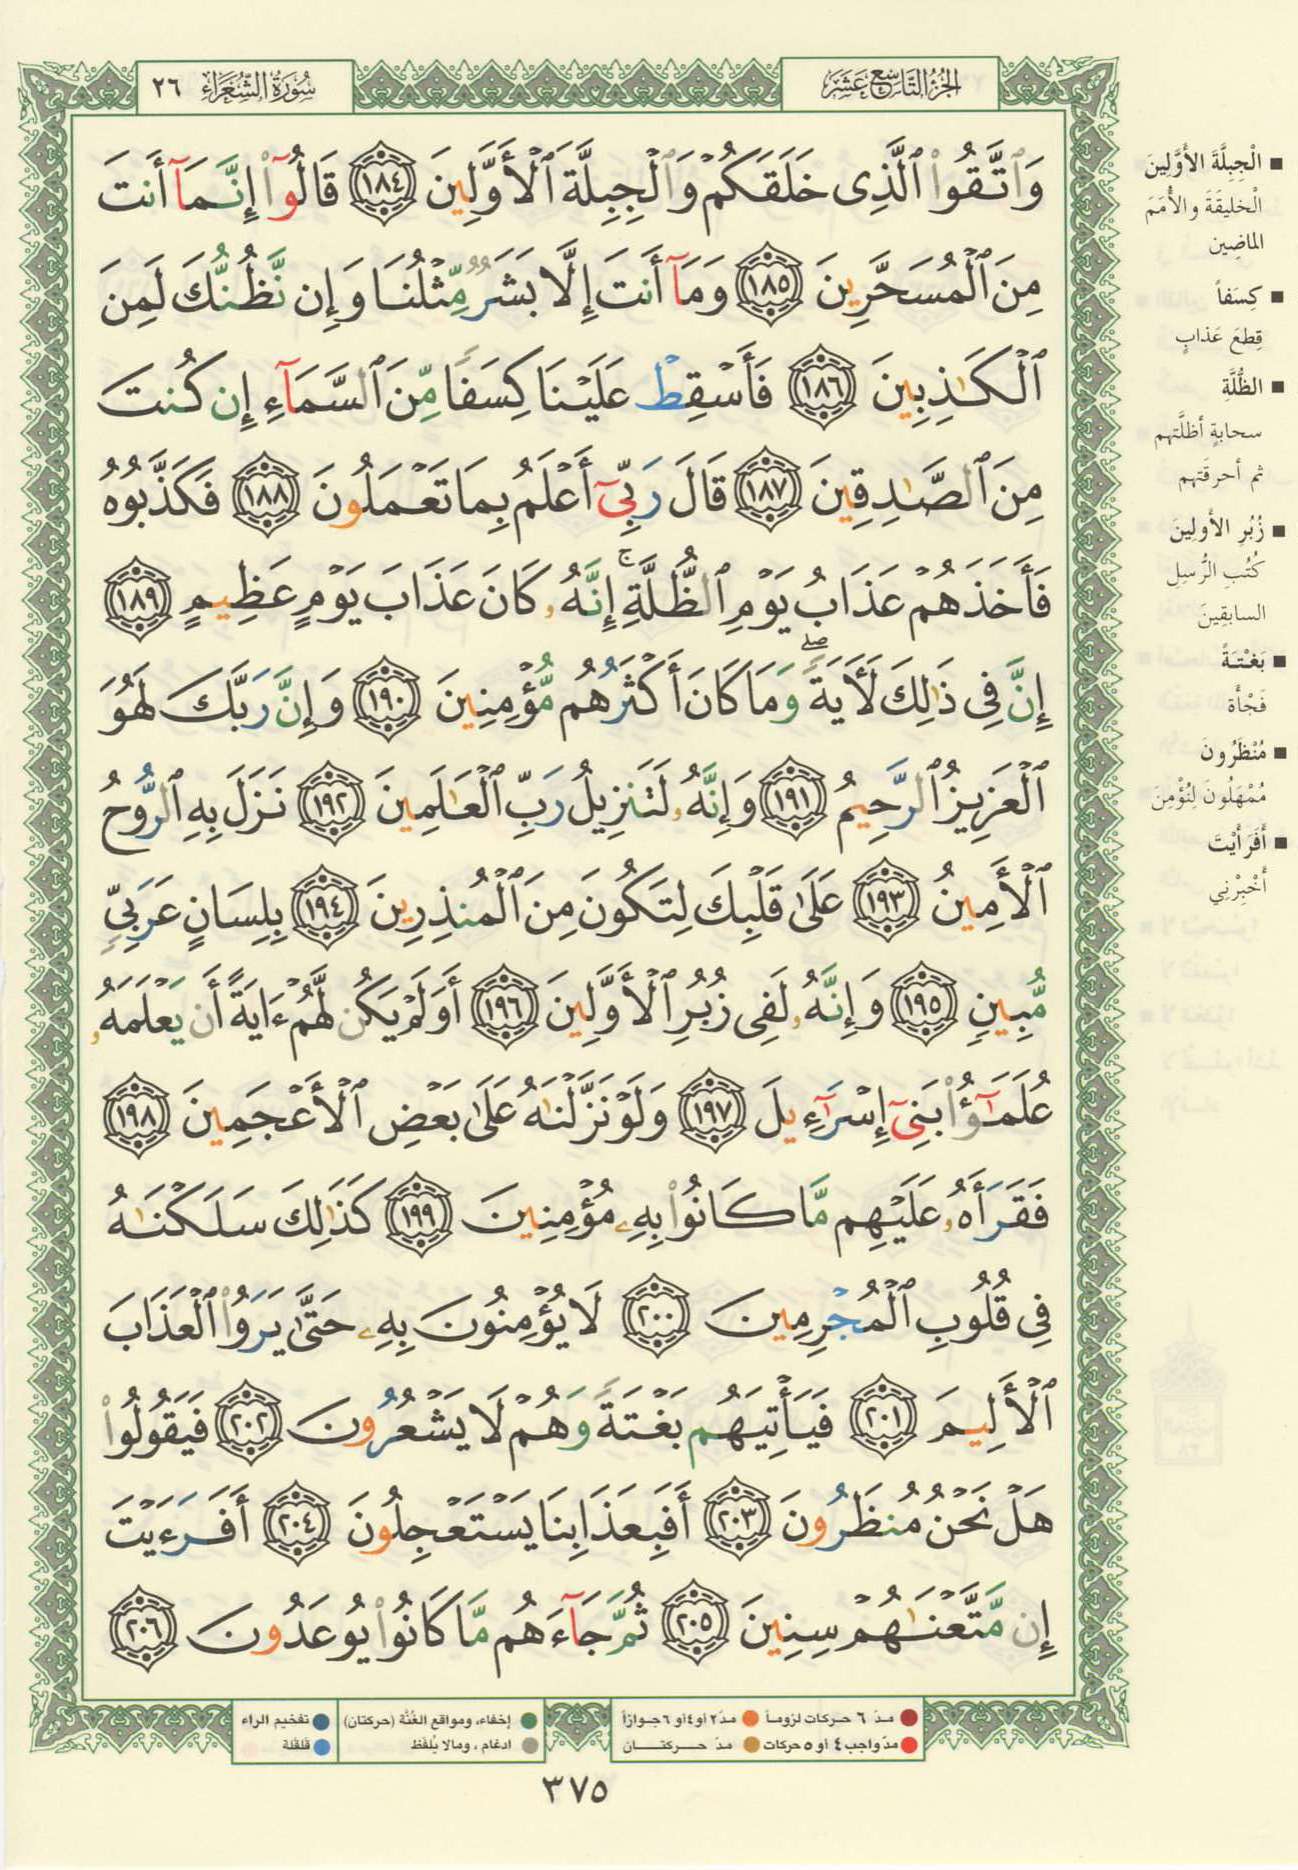 الجزء التاسع عشر
سورة الشعراء ٢٦
وَٱتَّقُوا۟ ٱلَّذِى خَلَقَكُمْ وَٱلْجِبِلَّةَ ٱلْأَوَّلِينَ ١٨٤ قَالُوٓا۟ إِنَّمَآ أَنتَ
مِنَ ٱلْمُسَحَّرِينَ ١٨٥ وَمَآ أَنتَ إِلَّا بَشَرٌ مِّثْلُنَا وَإِن نَّظُنُّكَ لَمِنَ
ٱلْكَـٰذِبِينَ ١٨٦ فَأَسْقِطْ عَلَيْنَا كِسَفًا مِّنَ ٱلسَّمَآءِ إِن كُنتَ
مِنَ ٱلصَّـٰدِقِينَ ١٨٧ قَالَ رَبِّىٓ أَعْلَمُ بِمَا تَعْمَلُونَ ١٨٨ فَكَذَّبُوهُ
فَأَخَذَهُمْ عَذَابُ يَوْمِ ٱلظُّلَّةِ ۚ إِنَّهُۥ كَانَ عَذَابَ يَوْمٍ عَظِيمٍ ١٨٩
إِنَّ فِى ذَٰلِكَ لَـَٔايَةً ۖ وَمَا كَانَ أَكْثَرُهُم مُّؤْمِنِينَ ١٩٠ وَإِنَّ رَبَّكَ لَهُوَ
ٱلْعَزِيزُ ٱلرَّحِيمُ ١٩١ وَإِنَّهُۥ لَتَنزِيلُ رَبِّ ٱلْعَـٰلَمِينَ ١٩٢ نَزَلَ بِهِ ٱلرُّوحُ
ٱلْأَمِينُ ١٩٣ عَلَىٰ قَلْبِكَ لِتَكُونَ مِنَ ٱلْمُنذِرِينَ ١٩٤ بِلِسَانٍ عَرَبِىٍّ
مُّبِينٍ ١٩٥ وَإِنَّهُۥ لَفِى زُبُرِ ٱلْأَوَّلِينَ ١٩٦ أَوَلَمْ يَكُن لَّهُمْ ءَايَةً أَن يَعْلَمَهُۥ
عُلَمَـٰٓؤُا۟ بَنِىٓ إِسْرَٰٓءِيلَ ١٩٧ وَلَوْ نَزَّلْنَـٰهُ عَلَىٰ بَعْضِ ٱلْأَعْجَمِينَ ١٩٨
فَقَرَأَهُۥ عَلَيْهِم مَّا كَانُوا۟ بِهِۦ مُؤْمِنِينَ ١٩٩ كَذَٰلِكَ سَلَكْنَـٰهُ
فِى قُلُوبِ ٱلْمُجْرِمِينَ ٢٠٠ لَا يُؤْمِنُونَ بِهِۦ حَتَّىٰ يَرَوُا۟ ٱلْعَذَابَ
ٱلْأَلِيمَ ٢٠١ فَيَأْتِيَهُم بَغْتَةً وَهُمْ لَا يَشْعُرُونَ ٢٠٢ فَيَقُولُوا۟
هَلْ نَحْنُ مُنظَرُونَ ٢٠٣ أَفَبِعَذَابِنَا يَسْتَعْجِلُونَ ٢٠٤ أَفَرَءَيْتَ
إِن مَّتَّعْنَـٰهُمْ سِنِينَ ٢٠٥ ثُمَّ جَآءَهُم مَّا كَانُوا۟ يُوعَدُونَ ٢٠٦
■ الْجِبِلَّةَ الأَوَّلِينَ
الْخَلِيقَةَ والأُمَمَ
الماضِين
■ كِسَفاً
قِطعَ عَذابٍ
■ الظُّلَّةِ
سحابةٍ أظلَّتهم
ثم أحرقَتهم
■ زُبُرِ الأولِينَ
كُتُبِ الرُّسِلِ
السابقِينَ
■ بَغْتَةً
فَجْأَة
■ مُنْظَرُونَ
مُمْهَلُونَ لِنُؤْمِنَ
■ أَفَرَأَيْتَ
أَخْبِرْنِي
مدّ ٦ حركات لزوماً مدّ٢ أو٤أو ٦جوازاً
مدّ واجب٤ أو ٥حركات مدّ حــركتــان
إخفاء، ومواقع الغُنَّة (حركتان) تفخيم الراء
ادغام ، ومالا يُلفَظ قلقلة
٣٧٥